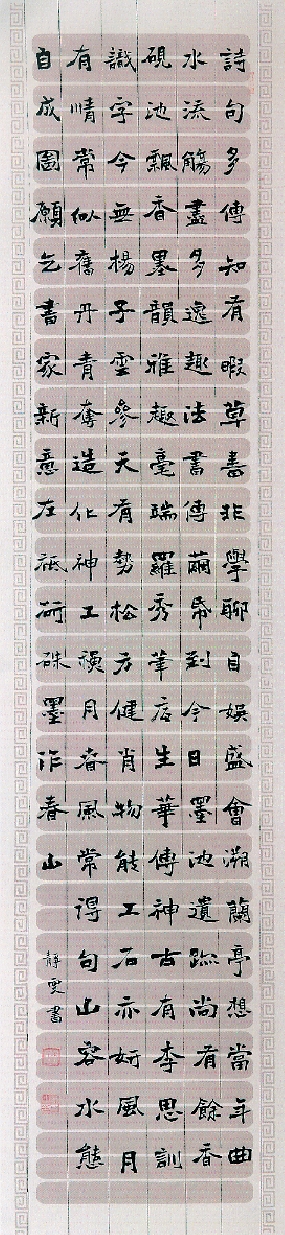 詩句多傳知有暇草書非學聊自娛盛會溯蘭亭想當年曲
水流觴盡多逸趣法書傳繭帋到今日墨池遺跡尚有餘香
硯池飄香墨韻雅趣毫端羅秀筆底生華傳神古有李思訓
識字今無楊子雲參天有勢松方健肖物能工石亦妍風月
有情常似舊丹青奪造化神工月春風常得句山容水態
自成圖願乞書家新意在祗研硃墨作春山
靜雯書